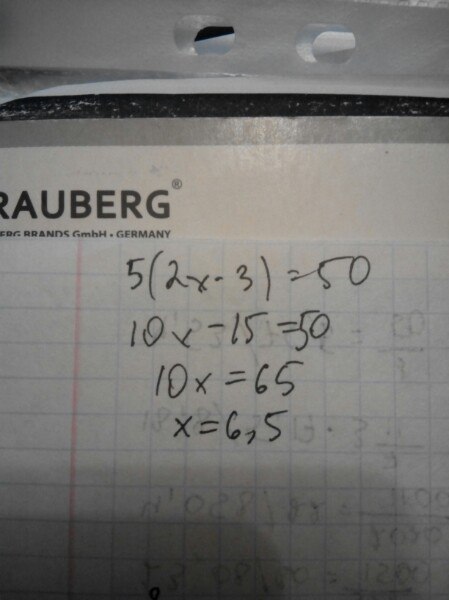 RAUBERG®
ERG BRANDS GmbH • GERMANY
5(2x-3)=50
10x-15=50
10x=65
x=6,5